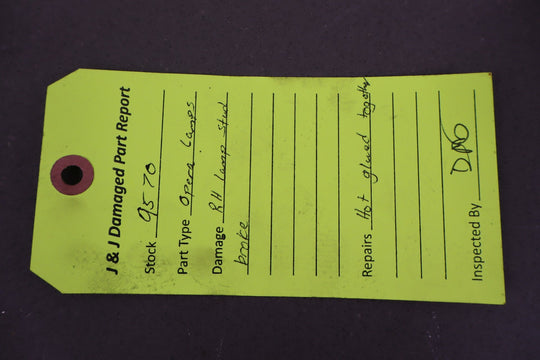 J & J Damaged Part Report
Stock 9570
Part Type Opera Lamps
Damage RH lamp stud
broke
Repairs Hot glued together
Inspected By DMO